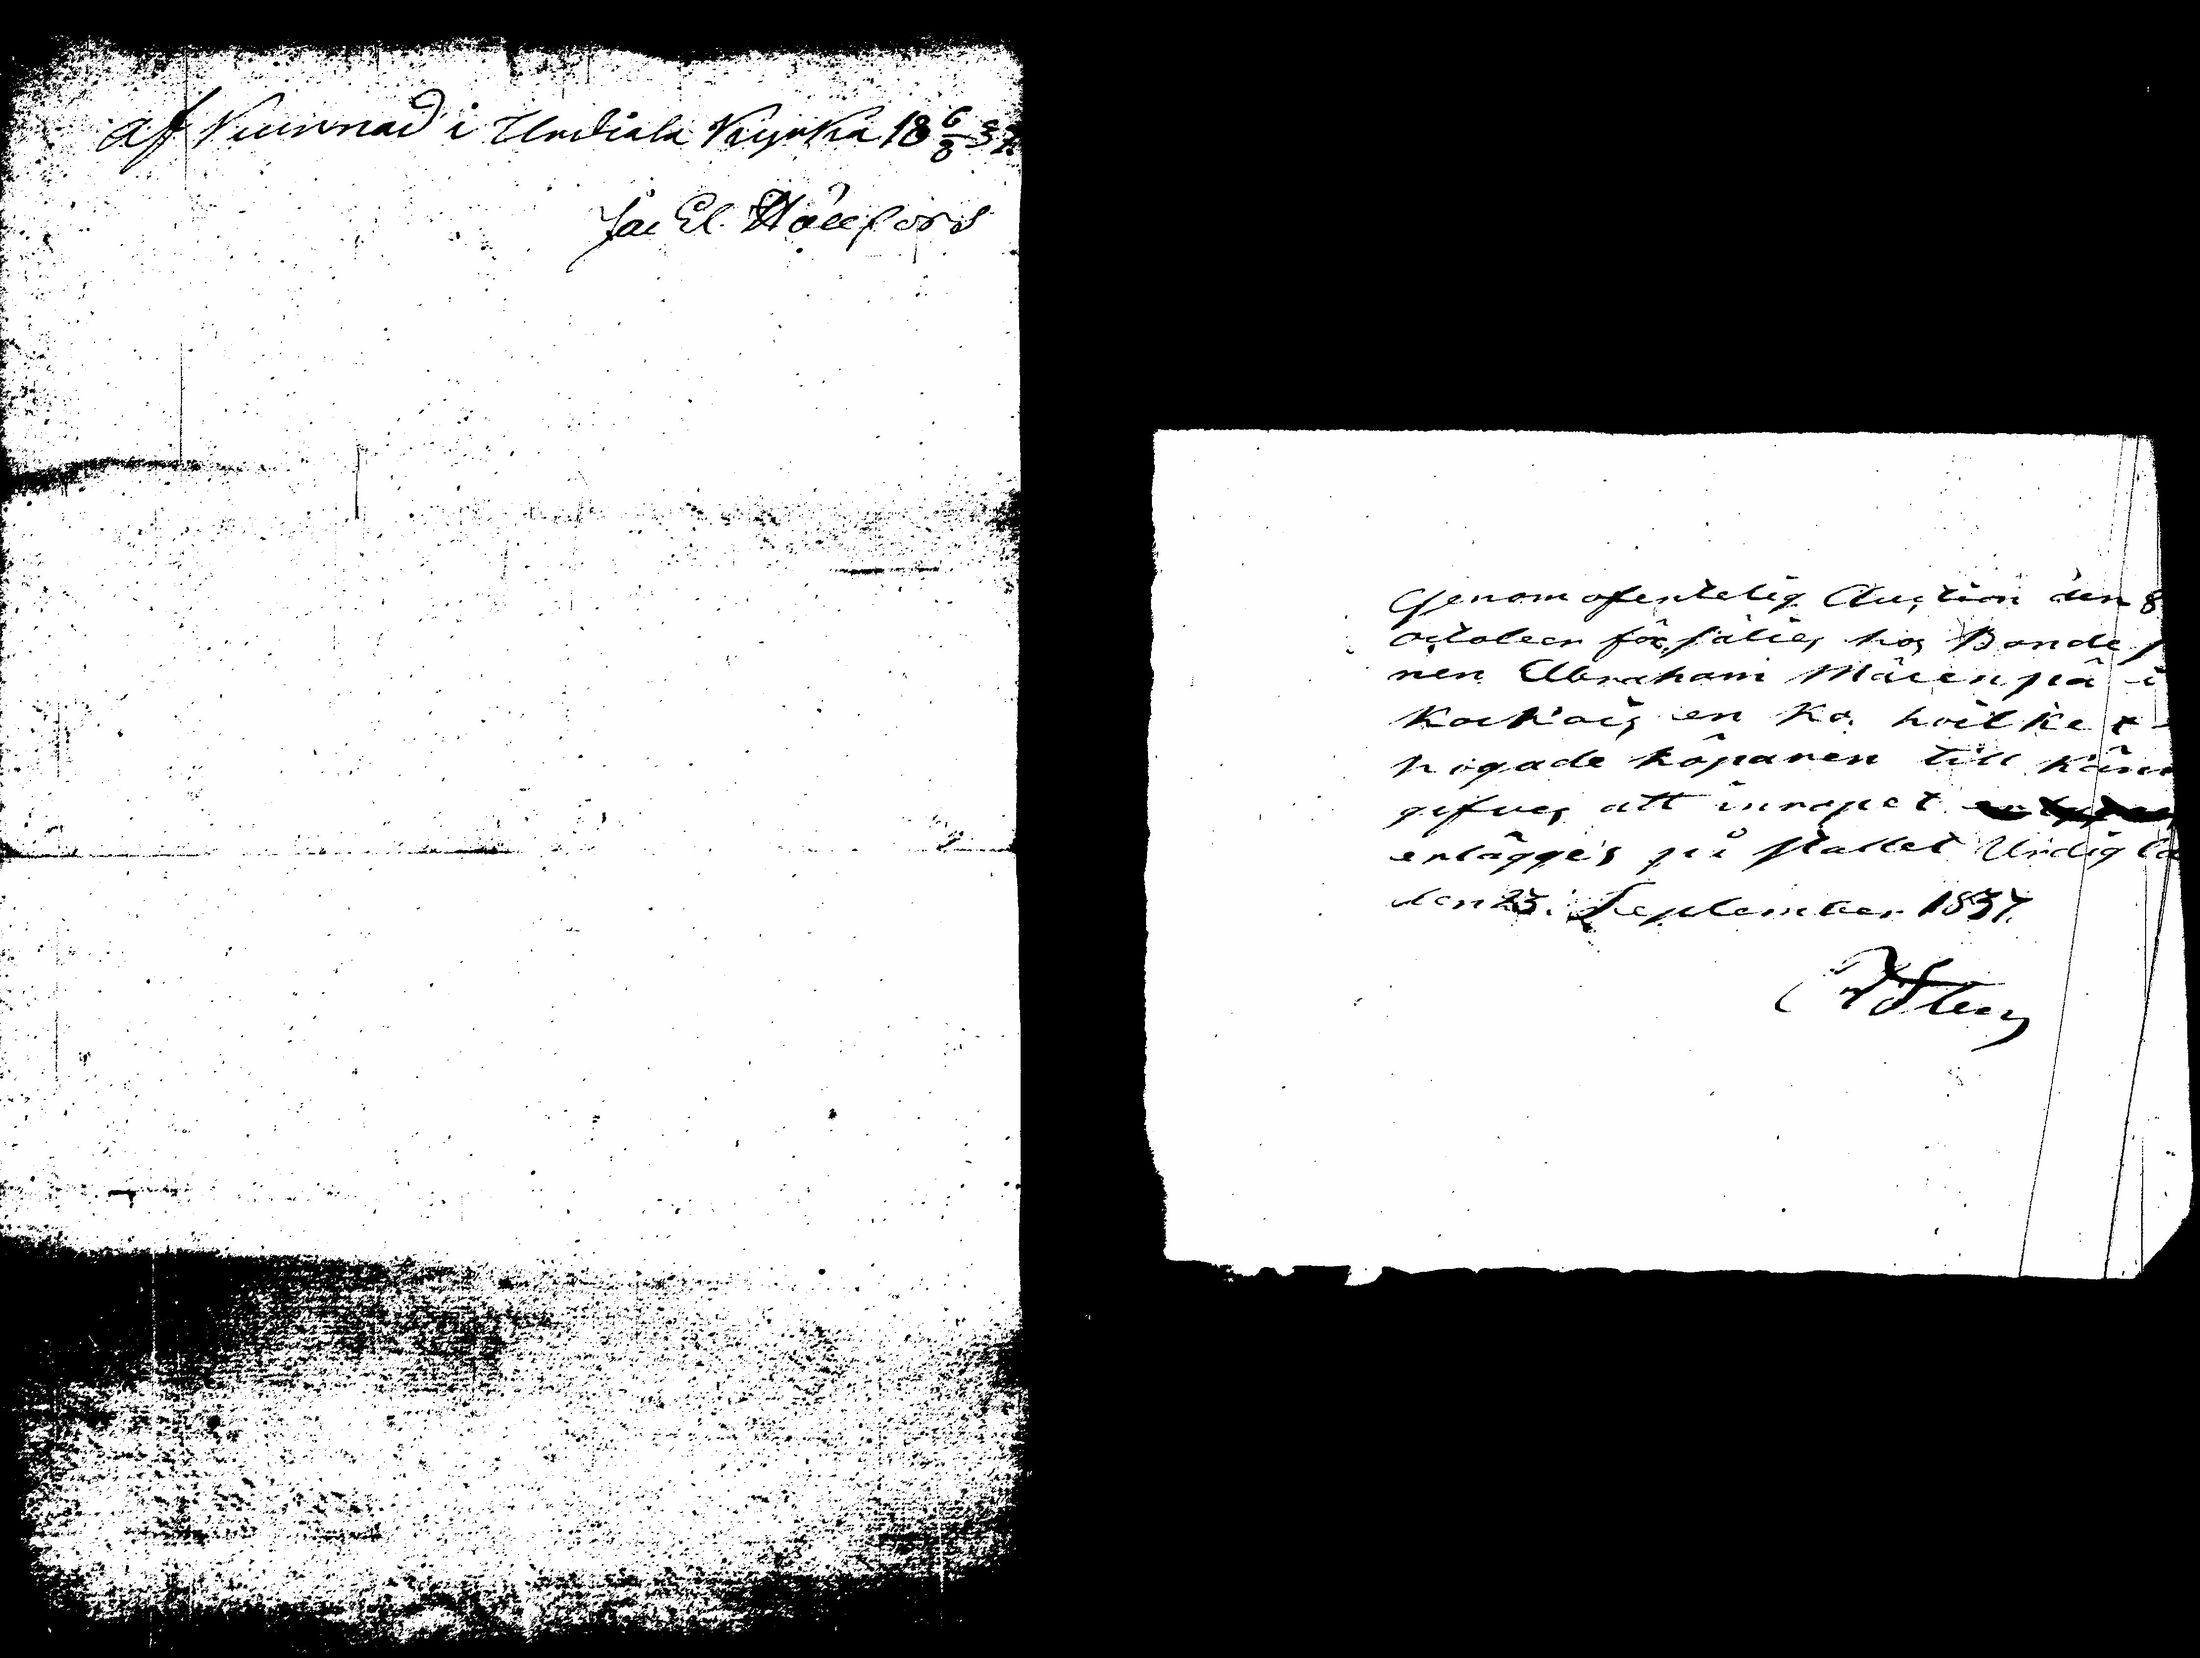 af kunnad i Urdiala Kyrka 18 6/8 37.
Jac El. Hällfors
Genom ofentelig Auction den 8
october försälies hos Bonde s
nen Abraham Mäcenpä i
Kockois en ko, hvilket
hogade köparen till känn
gifves att inropet
erlägges på stället Urdiala
den 23. September 1837.